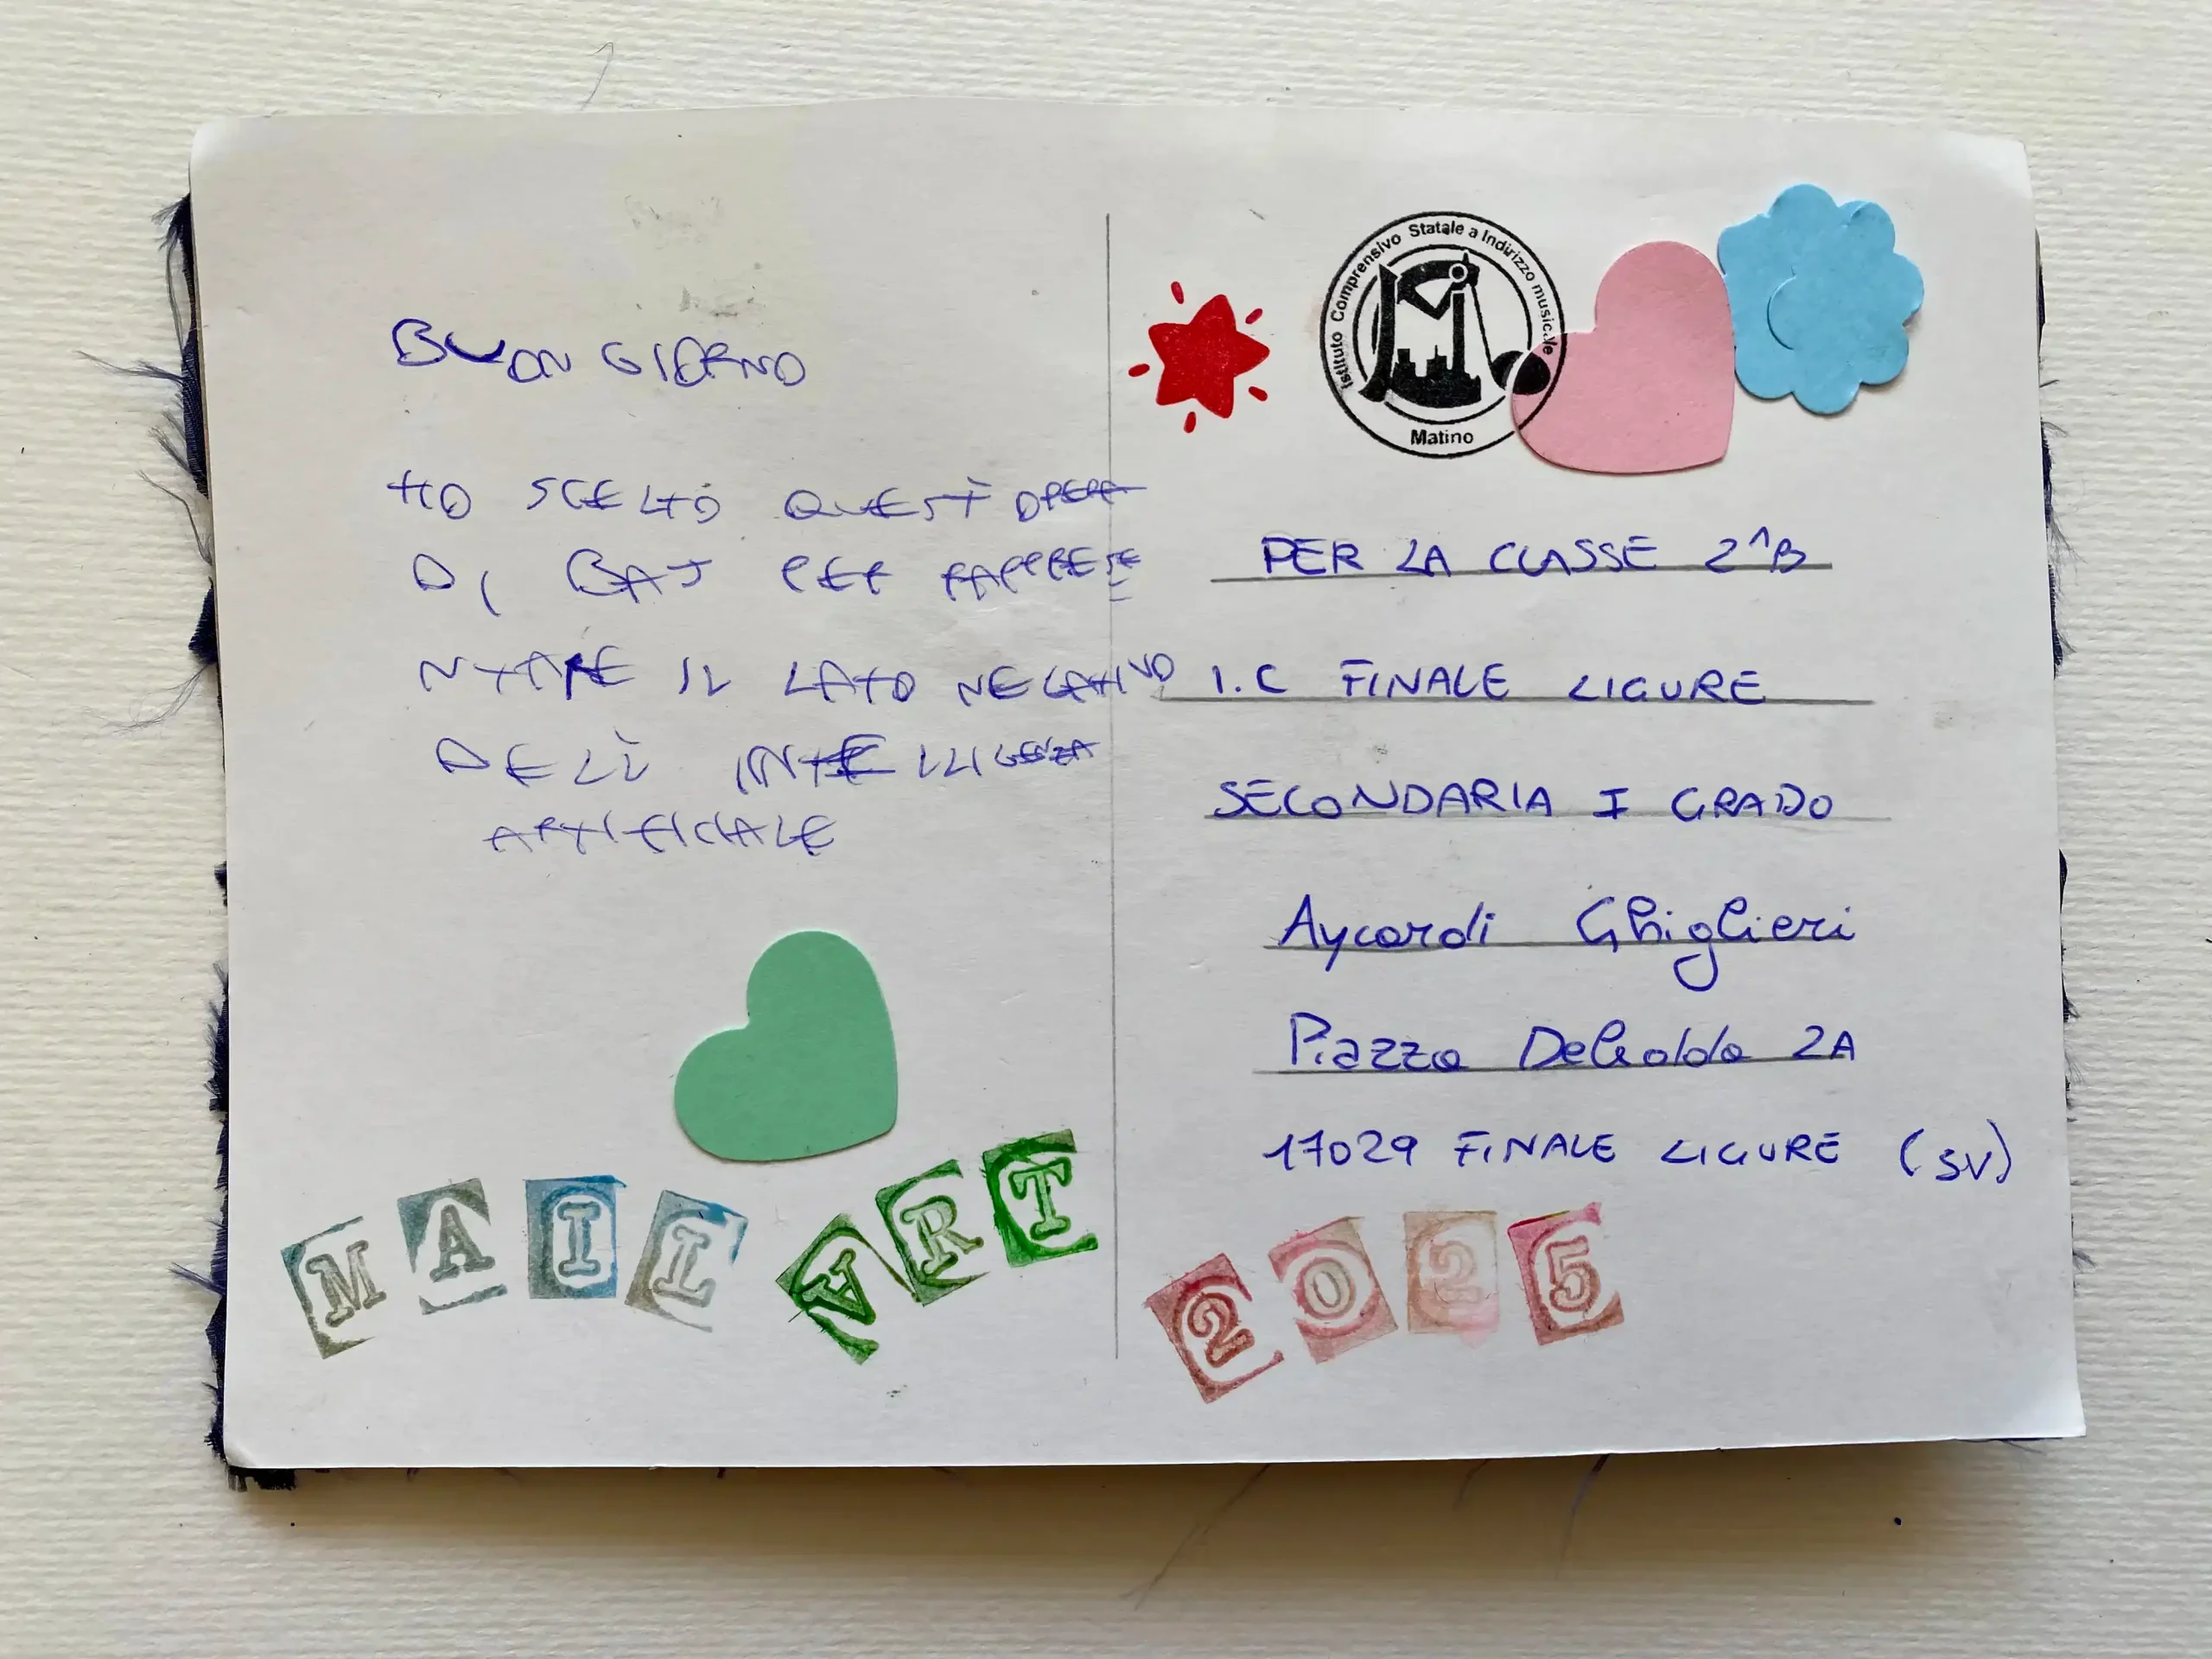 BUON GIORNO
HO SCELTO QUEST' OPERA
DI BAJ PER RAPPRESE
NTARE IL LATO NEGATIVO
DELL' INTELLIGENZA
ARTIFICIALE
MAIL ART
Istituto Comprensivo Statale a Indirizzo musicale
Matino
PER LA CLASSE 2^B
I.C FINALE LIGURE
SECONDARIA I GRADO
Aycardi Ghiglieri
Piazza 2A
17029 FINALE LIGURE (SV)
2025